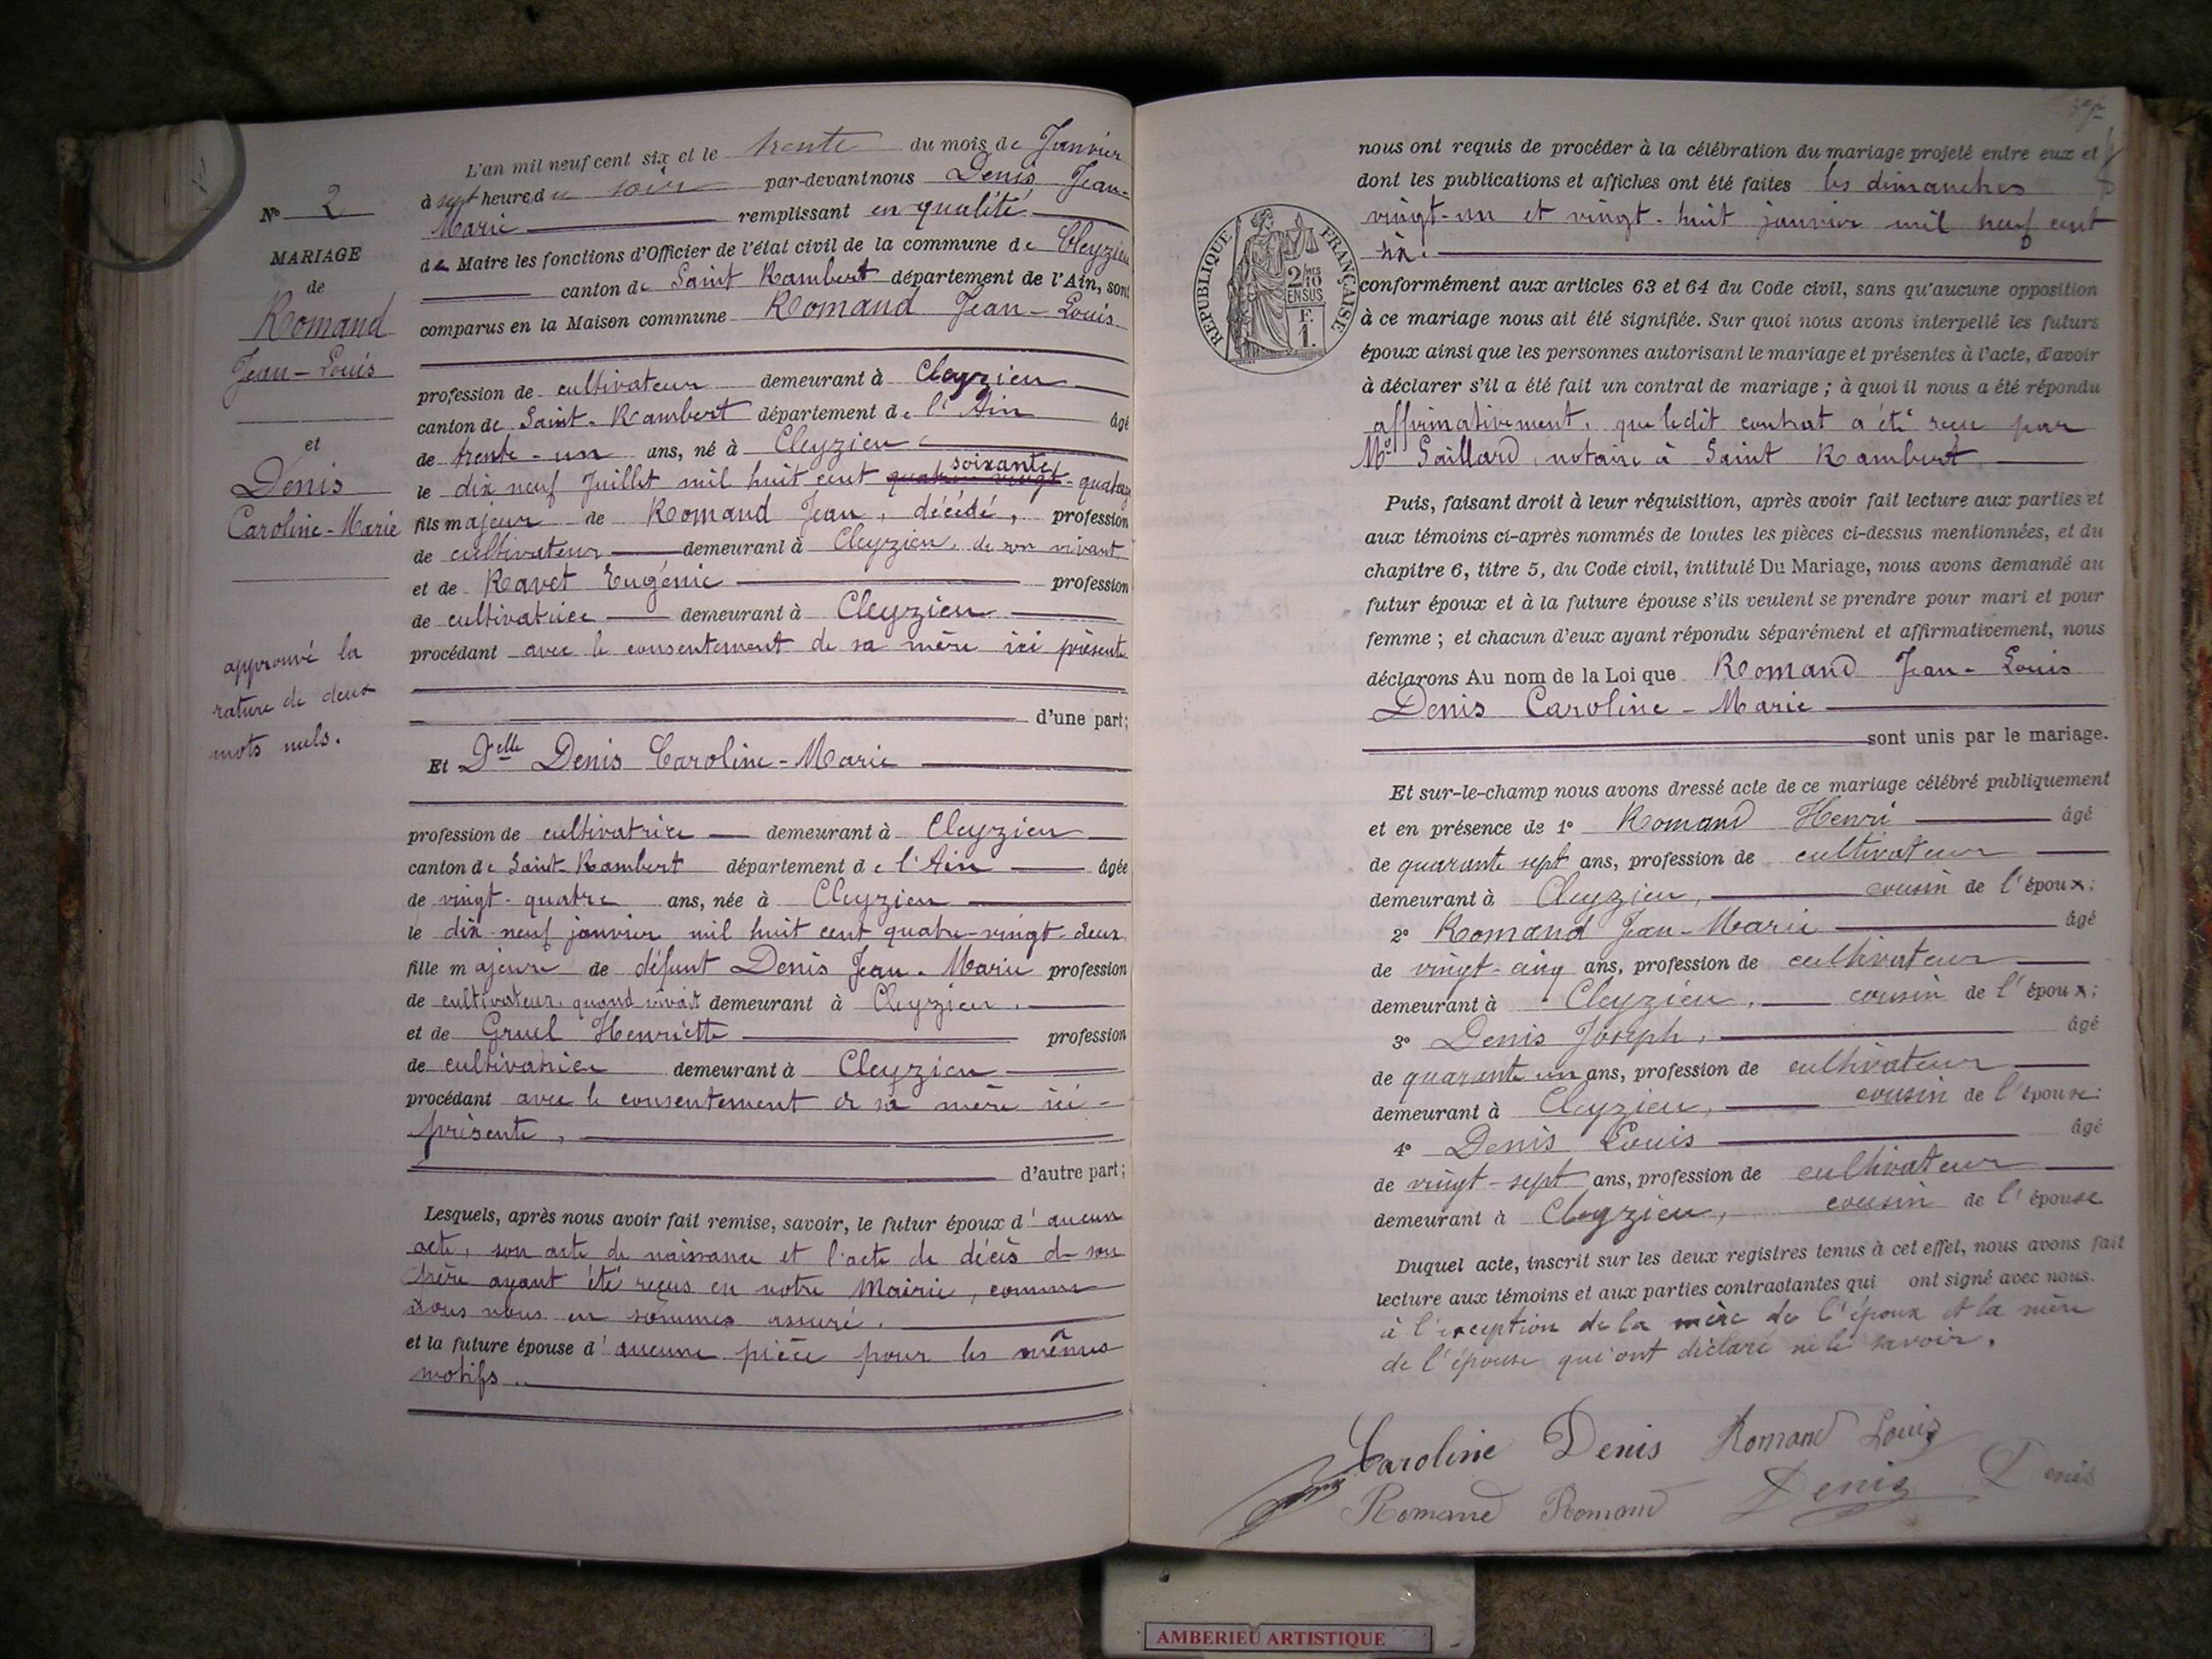 N° 2
MARIAGE
de
Romand
Jean-Louis
et
Denis
Caroline-Marie
approuvé la
rature de deux
mots nuls.
L'an mil neuf cent six et le trente du mois de Janvier
à sept heures du soir par-devant nous Denis, Jean-
Marie remplissant en qualité
de Maire les fonctions d'Officier de l'état civil de la commune de Cleyzieu
canton de Saint Rambert département de l'Ain, sont
comparus en la Maison commune Romand Jean-Louis
profession de cultivateur demeurant à Cleyzieu
canton de Saint-Rambert département de l'Ain âgé
de trente-un ans, né à Cleyzieu
le dix neuf Juillet mil huit cent quatre vingt soixante-quatorze
fils majeur de Romand Jean, décédé, profession
de cultivateur demeurant à Cleyzieu, de son vivant
et de Ravet Eugénie profession
de cultivatrice demeurant à Cleyzieu
procédant avec le consentement de sa mère ici présente
d'une part;
Et Delle Denis Caroline-Marie
profession de cultivatrice demeurant à Cleyzieu
canton de Saint-Rambert département de l'Ain âgée
de vingt-quatre ans, née à Cleyzieu
le dix-neuf janvier mil huit cent quatre-vingt-deux
fille majeure de défunt Denis Jean-Marie profession
de cultivateur, quand vivait demeurant à Cleyzieu.
et de Gruel Henriette profession
de cultivatrice demeurant à Cleyzieu
procédant avec le consentement de sa mère ici-
présente,
d'autre part;
Lesquels, après nous avoir fait remise, savoir, le futur époux d'aucun
acte, son acte de naissance et l'acte de décès de son
père ayant été reçus en notre Mairie, comme
nous nous en sommes assuré.
et la future épouse d'aucune pièce pour les mêmes
motifs.
nous ont requis de procéder à la célébration du mariage projeté entre eux et
dont les publications et affiches ont été faites les dimanches
vingt-un et vingt-huit janvier mil neuf cent
six.
RÉPUBLIQUE FRANÇAISE
2/10 MES
EN SUS
F.
1.
conformément aux articles 63 et 64 du Code civil, sans qu'aucune opposition
à ce mariage nous ait été signifiée. Sur quoi nous avons interpellé les futurs
époux ainsi que les personnes autorisant le mariage et présentes à l'acte, d'avoir
à déclarer s'il a été fait un contrat de mariage ; à quoi il nous a été répondu
affirmativement, que ledit contrat a été reçu par
Me Gaillard, notaire à Saint Rambert
Puis, faisant droit à leur réquisition, après avoir fait lecture aux parties et
aux témoins ci-après nommés de toutes les pièces ci-dessus mentionnées, et du
chapitre 6, titre 5, du Code civil, intitulé Du Mariage, nous avons demandé au
futur époux et à la future épouse s'ils veulent se prendre pour mari et pour
femme ; et chacun d'eux ayant répondu séparément et affirmativement, nous
déclarons Au nom de la Loi que Romand Jean-Louis
Denis Caroline-Marie
sont unis par le mariage.
Et sur-le-champ nous avons dressé acte de ce mariage célébré publiquement
et en présence de 1° Romand Henri âgé
de quarante sept ans, profession de cultivateur
demeurant à Cleyzieu, cousin de l'époux;
2° Romand Jean-Marie âgé
de vingt-cinq ans, profession de cultivateur
demeurant à Cleyzieu, cousin de l'époux;
3° Denis Joseph, âgé
de quarante un ans, profession de cultivateur
demeurant à Cleyzieu, cousin de l'épouse;
4° Denis Louis âgé
de vingt-sept ans, profession de cultivateur
demeurant à Cleyzieu, cousin de l'épouse
Duquel acte, inscrit sur les deux registres tenus à cet effet, nous avons fait
lecture aux témoins et aux parties contractantes qui ont signé avec nous.
à l'exception de la mère de l'époux et la mère
de l'épouse qui ont déclaré ne le savoir.
Caroline Denis Romand Louis
Romand Romand Denis Denis
AMBERIEU ARTISTIQUE